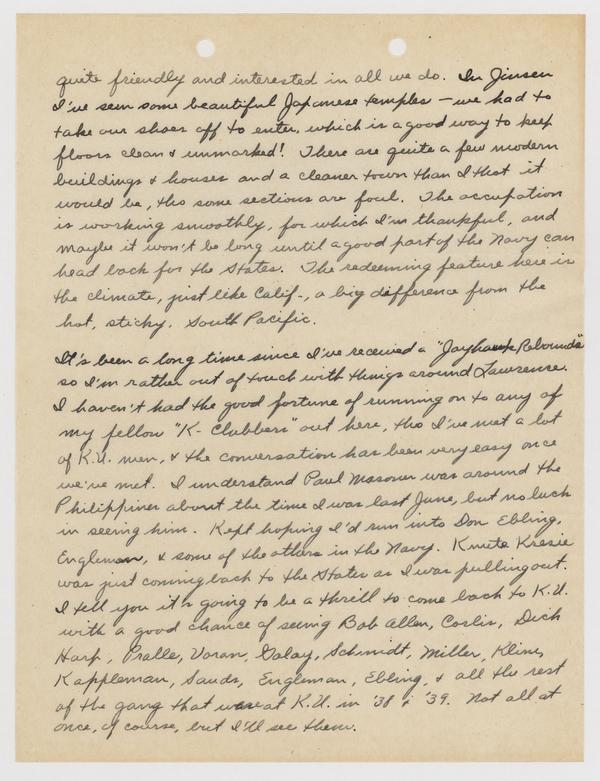 quite friendly and interested in all we do. In Jinsen
I've seen some beautiful Japanese temples – we had to
take our shoes off to enter, which is a good way to keep
floors clean & unmarked! There are quite a few modern
buildings & houses and a cleaner town than I that it
would be, tho some sections are foul. The occupation
is working smoothly, for which I'm thankful, and
maybe it won't be long until a good part of the Navy can
head back for the States. The redeeming feature here is
the climate, just like Calif-, a big difference from the
hot, sticky, South Pacific.
It's been a long time since I've received a "Jayhawk Rebounds"
so I'm rather out of touch with things around Lawrence.
I haven't had the good fortune of running on to any of
my fellow "K-Clubbers" out here, tho I've met a lot
of K.U. men, & the conversation has been very easy once
we've met. I understand Paul Masoner was around the
Philippines about the time I was last June, but no luck
in seeing him. Kept hoping I'd run into Don Ebling,
Engleman, & some of the others in the Navy. Knute Kresie
was just coming back to the States as I was pulling out.
I tell you it's going to be a thrill to come back to K.U.
with a good chance of seeing Bob Allen, Corlis, Dick
Harp, Pralle, Voran, Golay, Schmidt, Miller, Kline,
Kappleman, Sands, Engleman, Ebling, & all the rest
of the gang that was at K.U. in '38 & '39. Not all at
once, of course, but I'll see them.